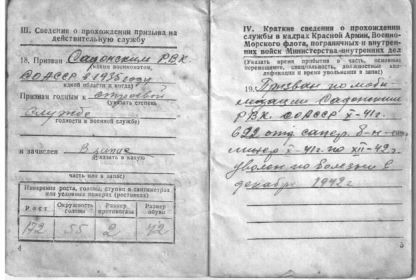 III. Сведения о прохождении призыва на
действительную службу
18. Призван Садонским РВК
каким военкоматом,
СОАССР в 1936 году
какой области и когда)
Призван годным к строевой
(указать степень
службе
годности к военной службе)
и зачислен В запас
(указать в какую
часть или в запас)
Измерения роста, головы, ступни в сантиметрах
или условных номерах (ростовках)
Рост Окружность головы Размер противогаза Размер обуви
172 55 2 42
4
IV. Краткие сведения о прохождении
службы в кадрах Красной Армии, Военно-
Морского флота, пограничных и внутрен-
них войск Министерства внутренних дел
(Указать время прибытия в часть, основные
перемещения, специальность, должностные
квалификации и время увольнения в запас)
19. Призван по моби-
лизации Садонским
РВК. СОАССР X-41г.
622 отд. сапер. б-н
X-41г. по XII-42г.
уволен по болезни в
декабр 1942г.
5